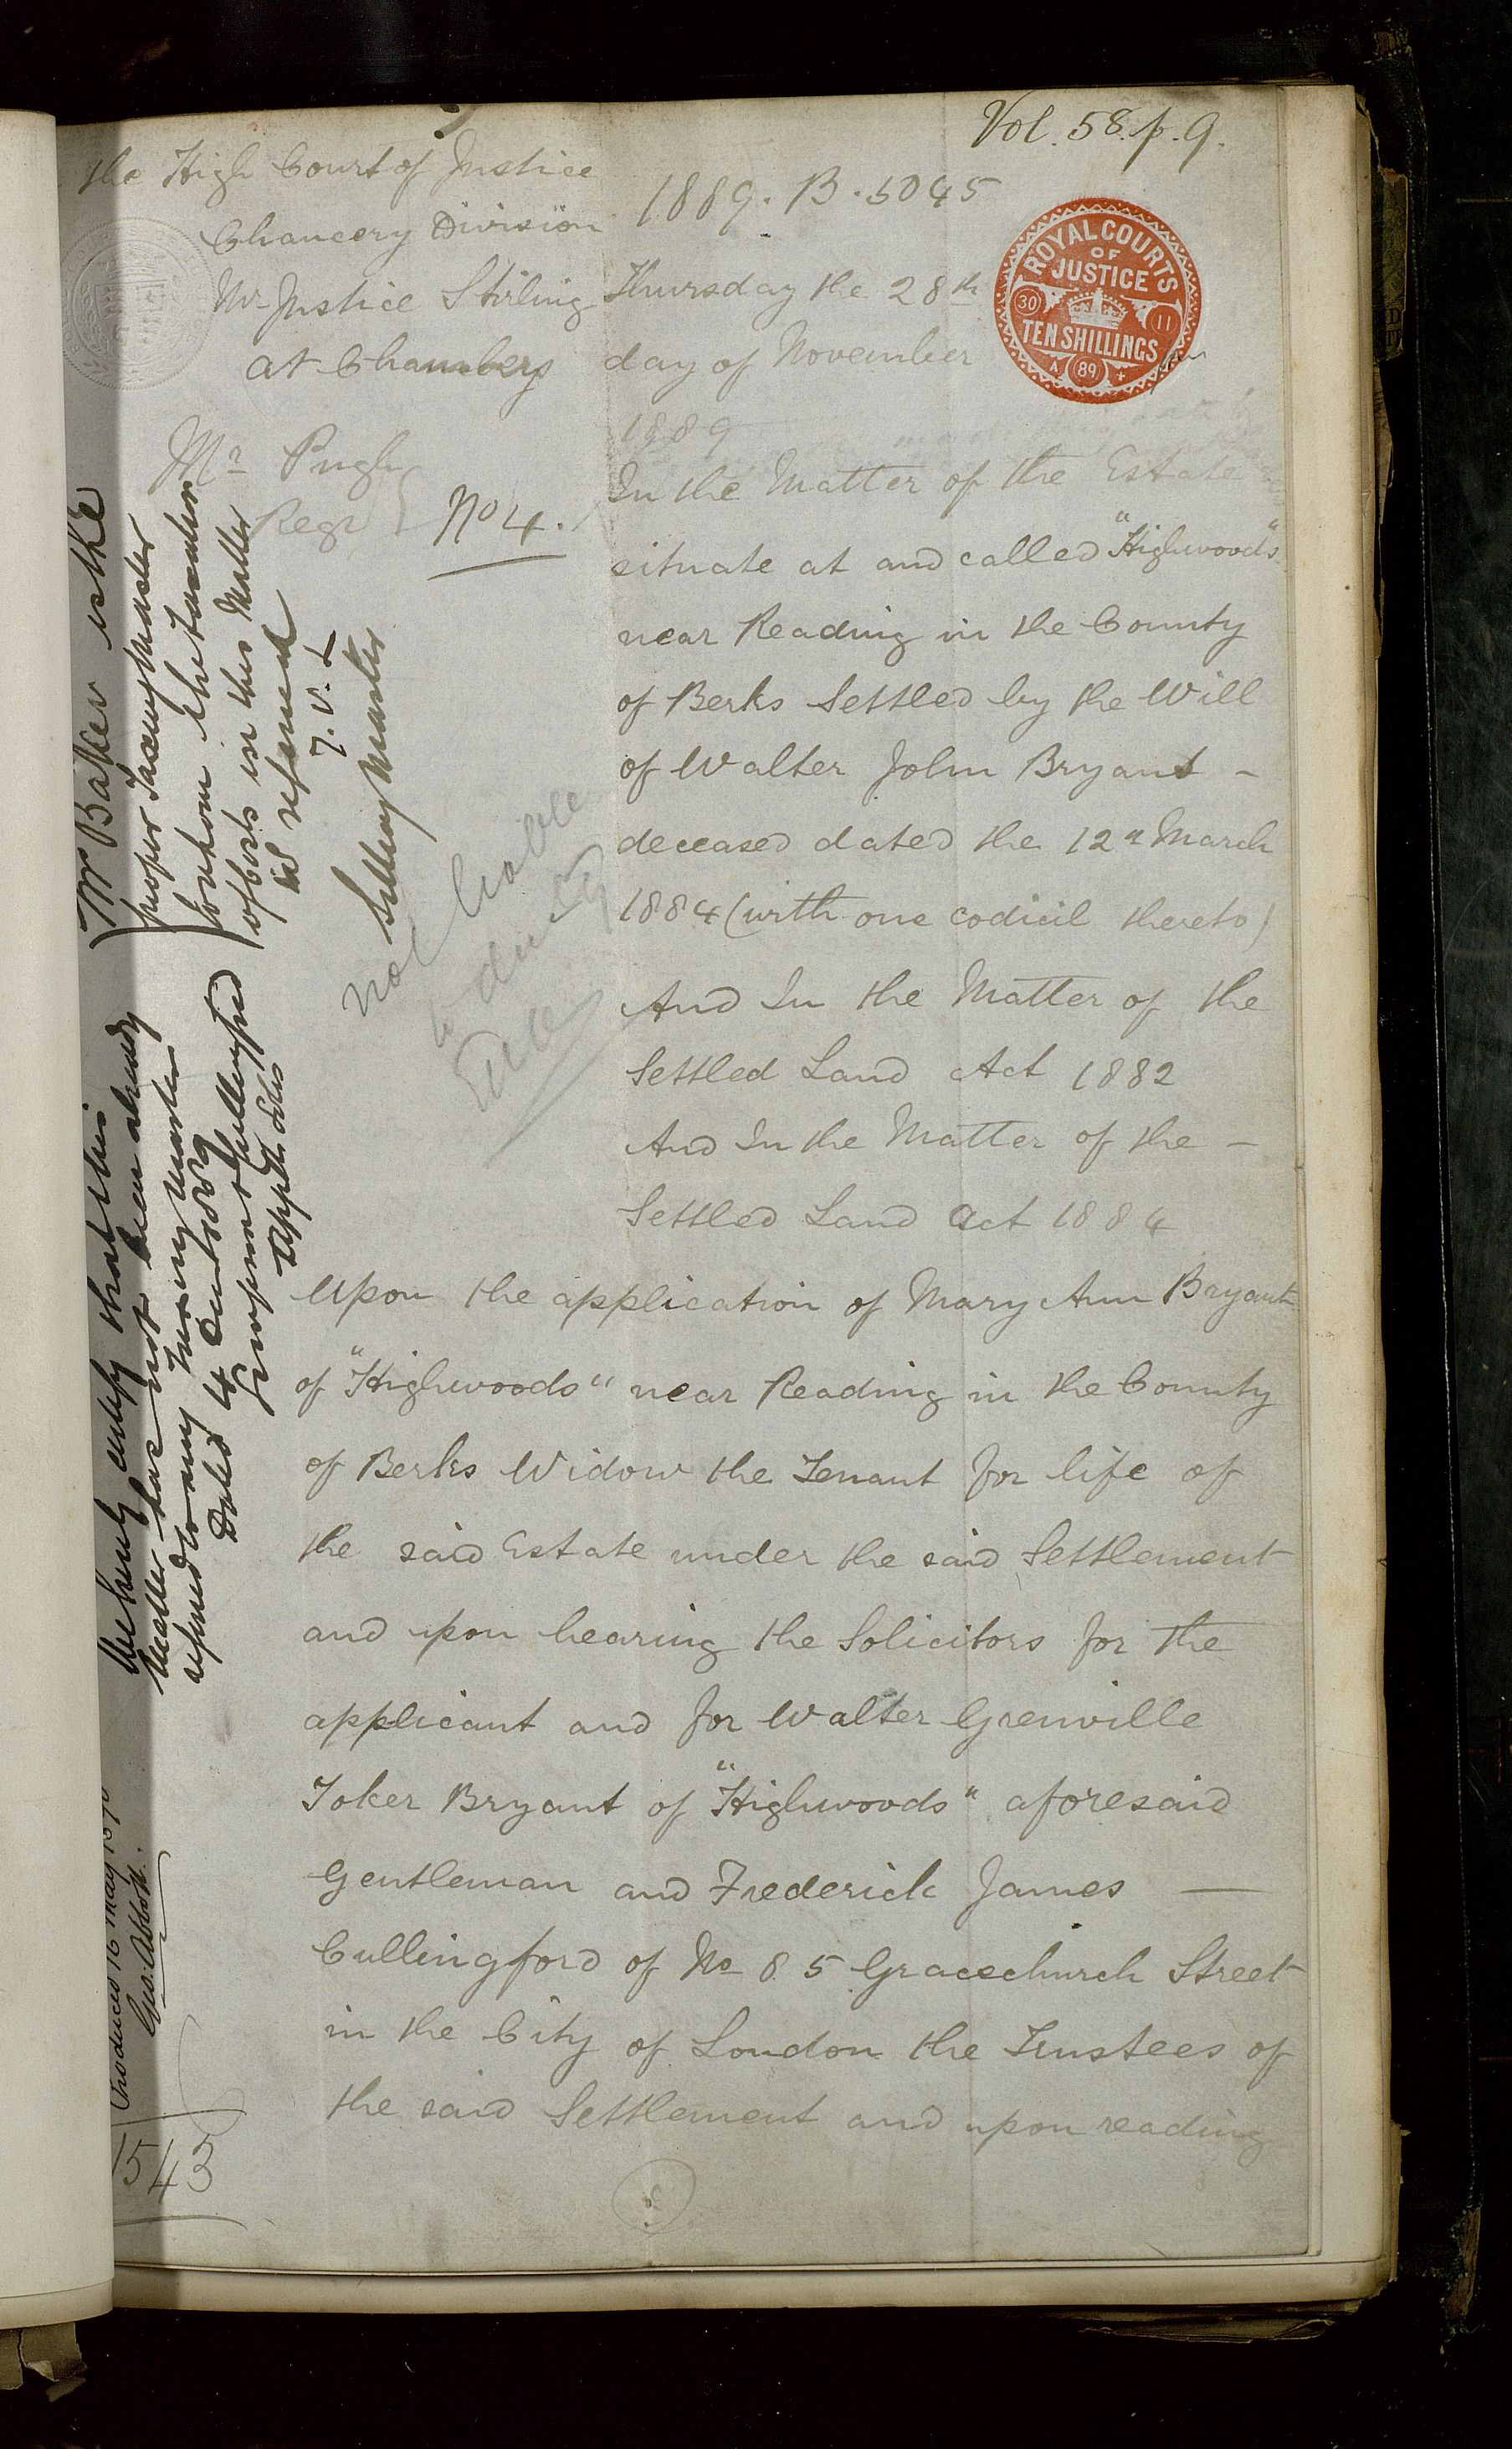 Vol. 58. p. 9.
the High Court of Justice
Chancery Division
Mr Justice Stirling
at Chambers
Mr Pugh
Regr
No 4.
1889. B. 5045
ROYAL COURTS
OF
JUSTICE
30
11
TEN SHILLINGS
A 89 +
Thursday the 28th
day of November
1889
In the Matter of the Estate
situate at and called "Highwoods"
near Reading in the County
of Berks Settled by the Will
of Walter John Bryant -
deceased dated the 12th March
1884 (with one codicil thereto)
And In the Matter of the
Settled Land Act 1882
And In the Matter of the -
Settled Land Act 1884
Upon the application of Mary Ann Bryant
of "Highwoods" near Reading in the County
of Berks Widow the Tenant for life of
the said Estate under the said Settlement
and upon hearing the Solicitors for the
applicant and for Walter Grenville
Toker Bryant of "Highwoods" aforesaid
Gentleman and Frederick James —
Cullingford of No 85 Gracechurch Street
in the City of London the Trustees of
the said Settlement and upon reading
Mr Baker is the
proper Taxing Master
to whom the taxation
of Costs in this Matter
is referred
Sitting Master
not liable
to duty
We hereby certify that this
Matter has not been already
referred to any Taxing Master
Dated 4
Applts Solrs
Produced 16 May 1890
Geo. Abbott.
1543